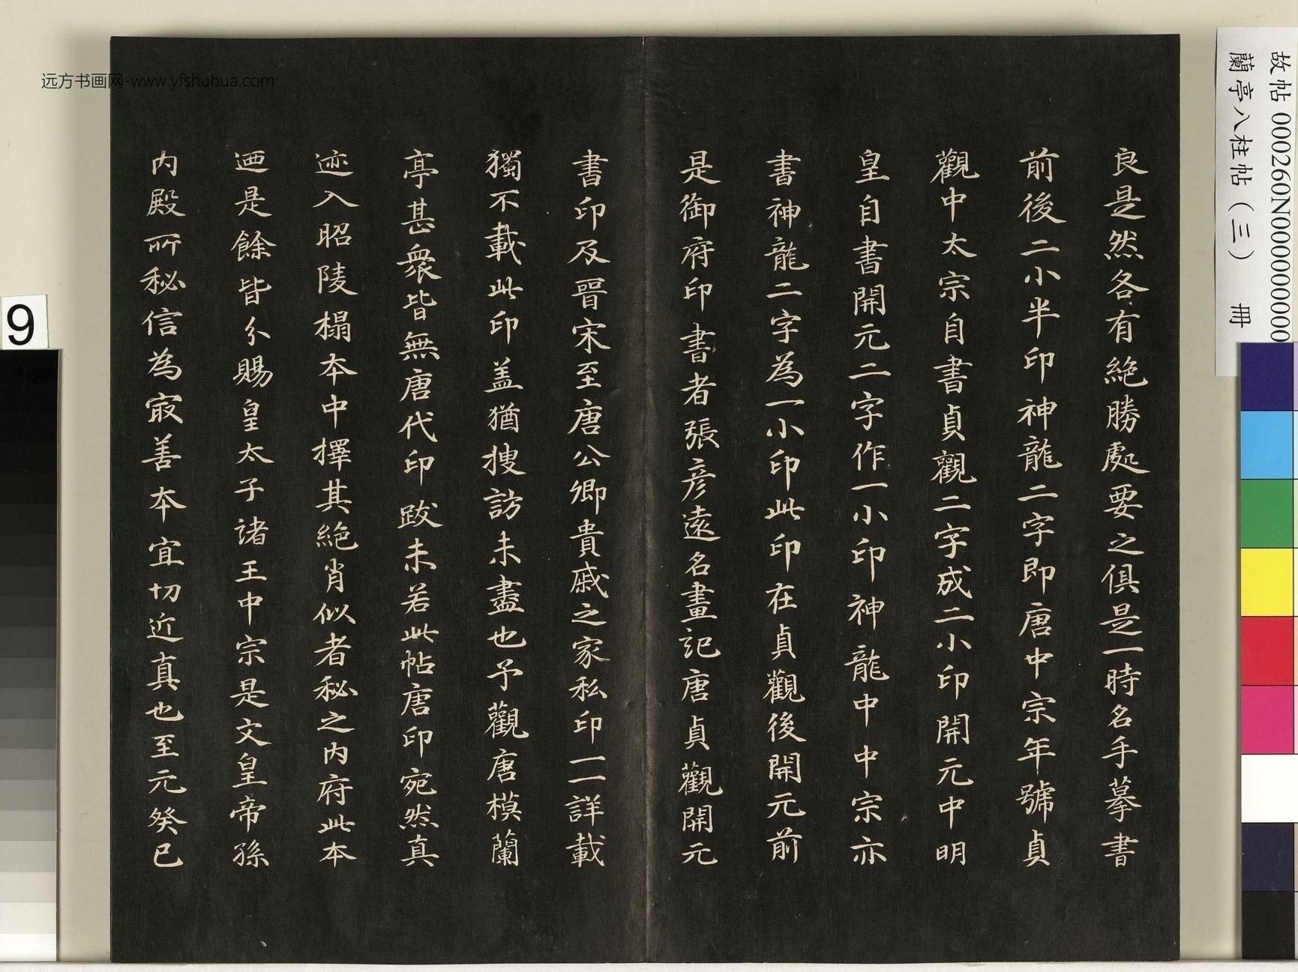 良是然各有絕勝處要之俱是一時名手摹書
前後二小半印神龍二字即唐中宗年號貞
觀中太宗自書貞觀二字成二小印開元中明
皇自書開元二字作一小印神龍中中宗亦
書神龍二字為一小印此印在貞觀後開元前
是御府印書者張彥遠名畫記唐貞觀開元
書印及晉宋至唐公卿貴戚之家私印一一詳載
獨不載此印盖猶搜訪未盡也予觀唐模蘭
亭甚衆皆無唐代印跋未若此帖唐印宛然真
迹入昭陵榻本中擇其絕肖似者秘之内府此本
迺是餘皆分賜皇太子诸王中宗是文皇帝孫
内殿所秘信為㝡善本宜切近真也至元癸巳
故帖 000260N000000000
蘭亭八柱帖（三） 冊
远方书画网-www.yfshuhua.com
9